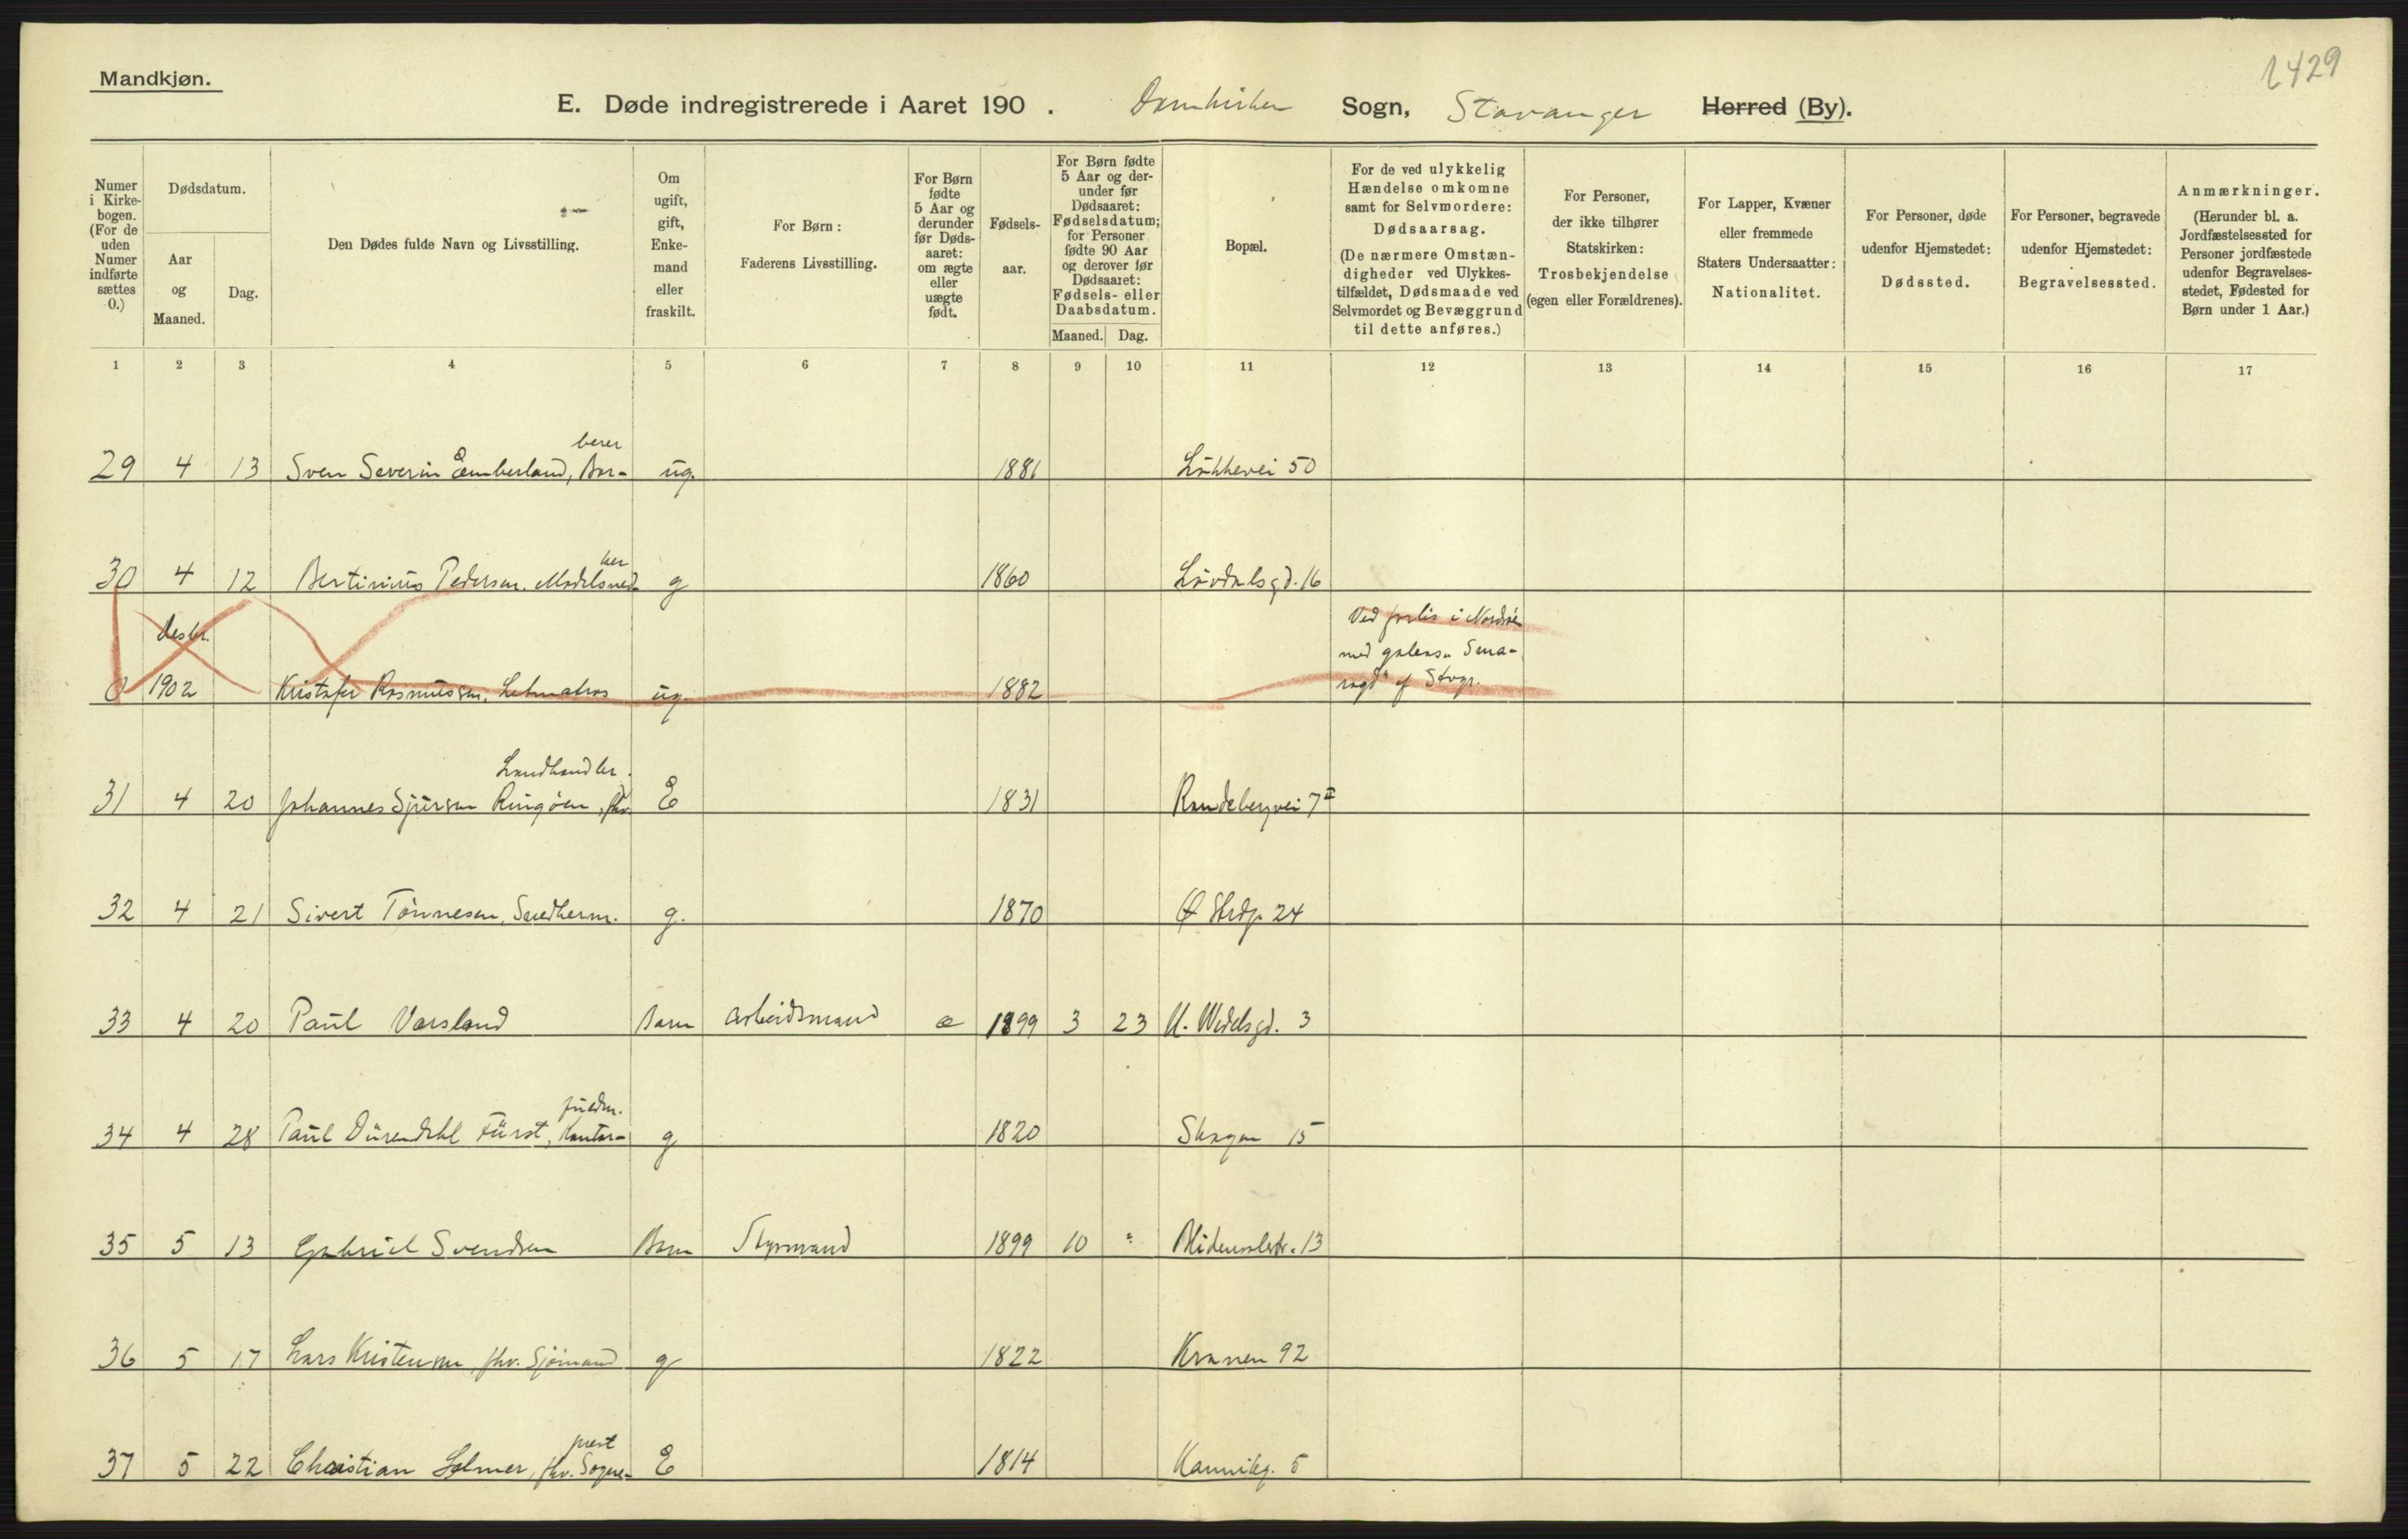 Mandkjøn.
1429
E. Døde indregistrerede i Aaret 190 . Domkirken Sogn, Stavanger Herred (By).
Numer i Kirkebogen. (For de uden Numer indførte sættes 0.)
Dødsdatum.
Aar og Maaned.
Dag.
Den Dødes fulde Navn og Livsstilling.
Om ugift, gift, Enkemand eller fraskilt.
For Børn: Faderens Livsstilling.
For Børn fødte 5 Aar og derunder før Dødsaaret: om ægte eller uægte født.
Fødselsaar.
For Børn fødte 5 Aar og derunder før Dødsaaret: Fødselsdatum; for Personer fødte 90 Aar og derover før Dødsaaret: Fødsels- eller Daabsdatum.
Maaned. Dag.
Bopæl.
For de ved ulykkelig Hændelse omkomne samt for Selvmordere: Dødsaarsag. (De nærmere Omstændigheder ved Ulykkestilfældet, Dødsmaade ved Selvmordet og Bevæggrund til dette anføres.)
For Personer, der ikke tilhører Statskirken: Trosbekjendelse (egen eller Forældrenes).
For Lapper, Kvæner eller fremmede Staters Undersaatter: Nationalitet.
For Personer, døde udenfor Hjemstedet: Dødssted.
For Personer, begravede udenfor Hjemstedet: Begravelsessted.
Anmærkninger. (Herunder bl. a. Jordfæstelsessted for Personer jordfæstede udenfor Begravelsesstedet, Fødested for Børn under 1 Aar.)
1 2 3 4 5 6 7 8 9 10 11 12 13 14 15 16 17
berer
29 4 13 Sven Severin Emberland, Bar- ug. 1881 Løkkevei 50
ker
30 4 12 Bertinius Pedersen. Modelsned- g 1860 Løvdalsgd. 16
Desbr. Ved forlis i Nordsøen
med galeas „Sma-
0 1902 Kristofer Rasmussen, Letmatros ug. 1882 ragd" af Stvgr.
Landhandler.
31 4 20 Johannes Sjursen Ringøen, fhv. E 1831 Randebergvei 7
32 4 21 Sivert Tønnesen, Snedkerm. g. 1870 Ø Strdg. 24
33 4 20 Paul Varsland Barn Arbeidsmand æ 1899 3 23 N. Wedelsgd. 3
fuldm.
34 4 28 Paul Dürendahl Fürst, Kontor- g 1820 Skagen 15
35 5 13 Gabriel Svendsen Barn Styrmand 1899 10 " Blidensolstr. 13
36 5 17 Lars Kristensen, fhv. Sjømand g 1822 Kranen 92
prest
37 5 22 Christian Selmer, fhv. Sogne- E 1814 Kannikg. 5